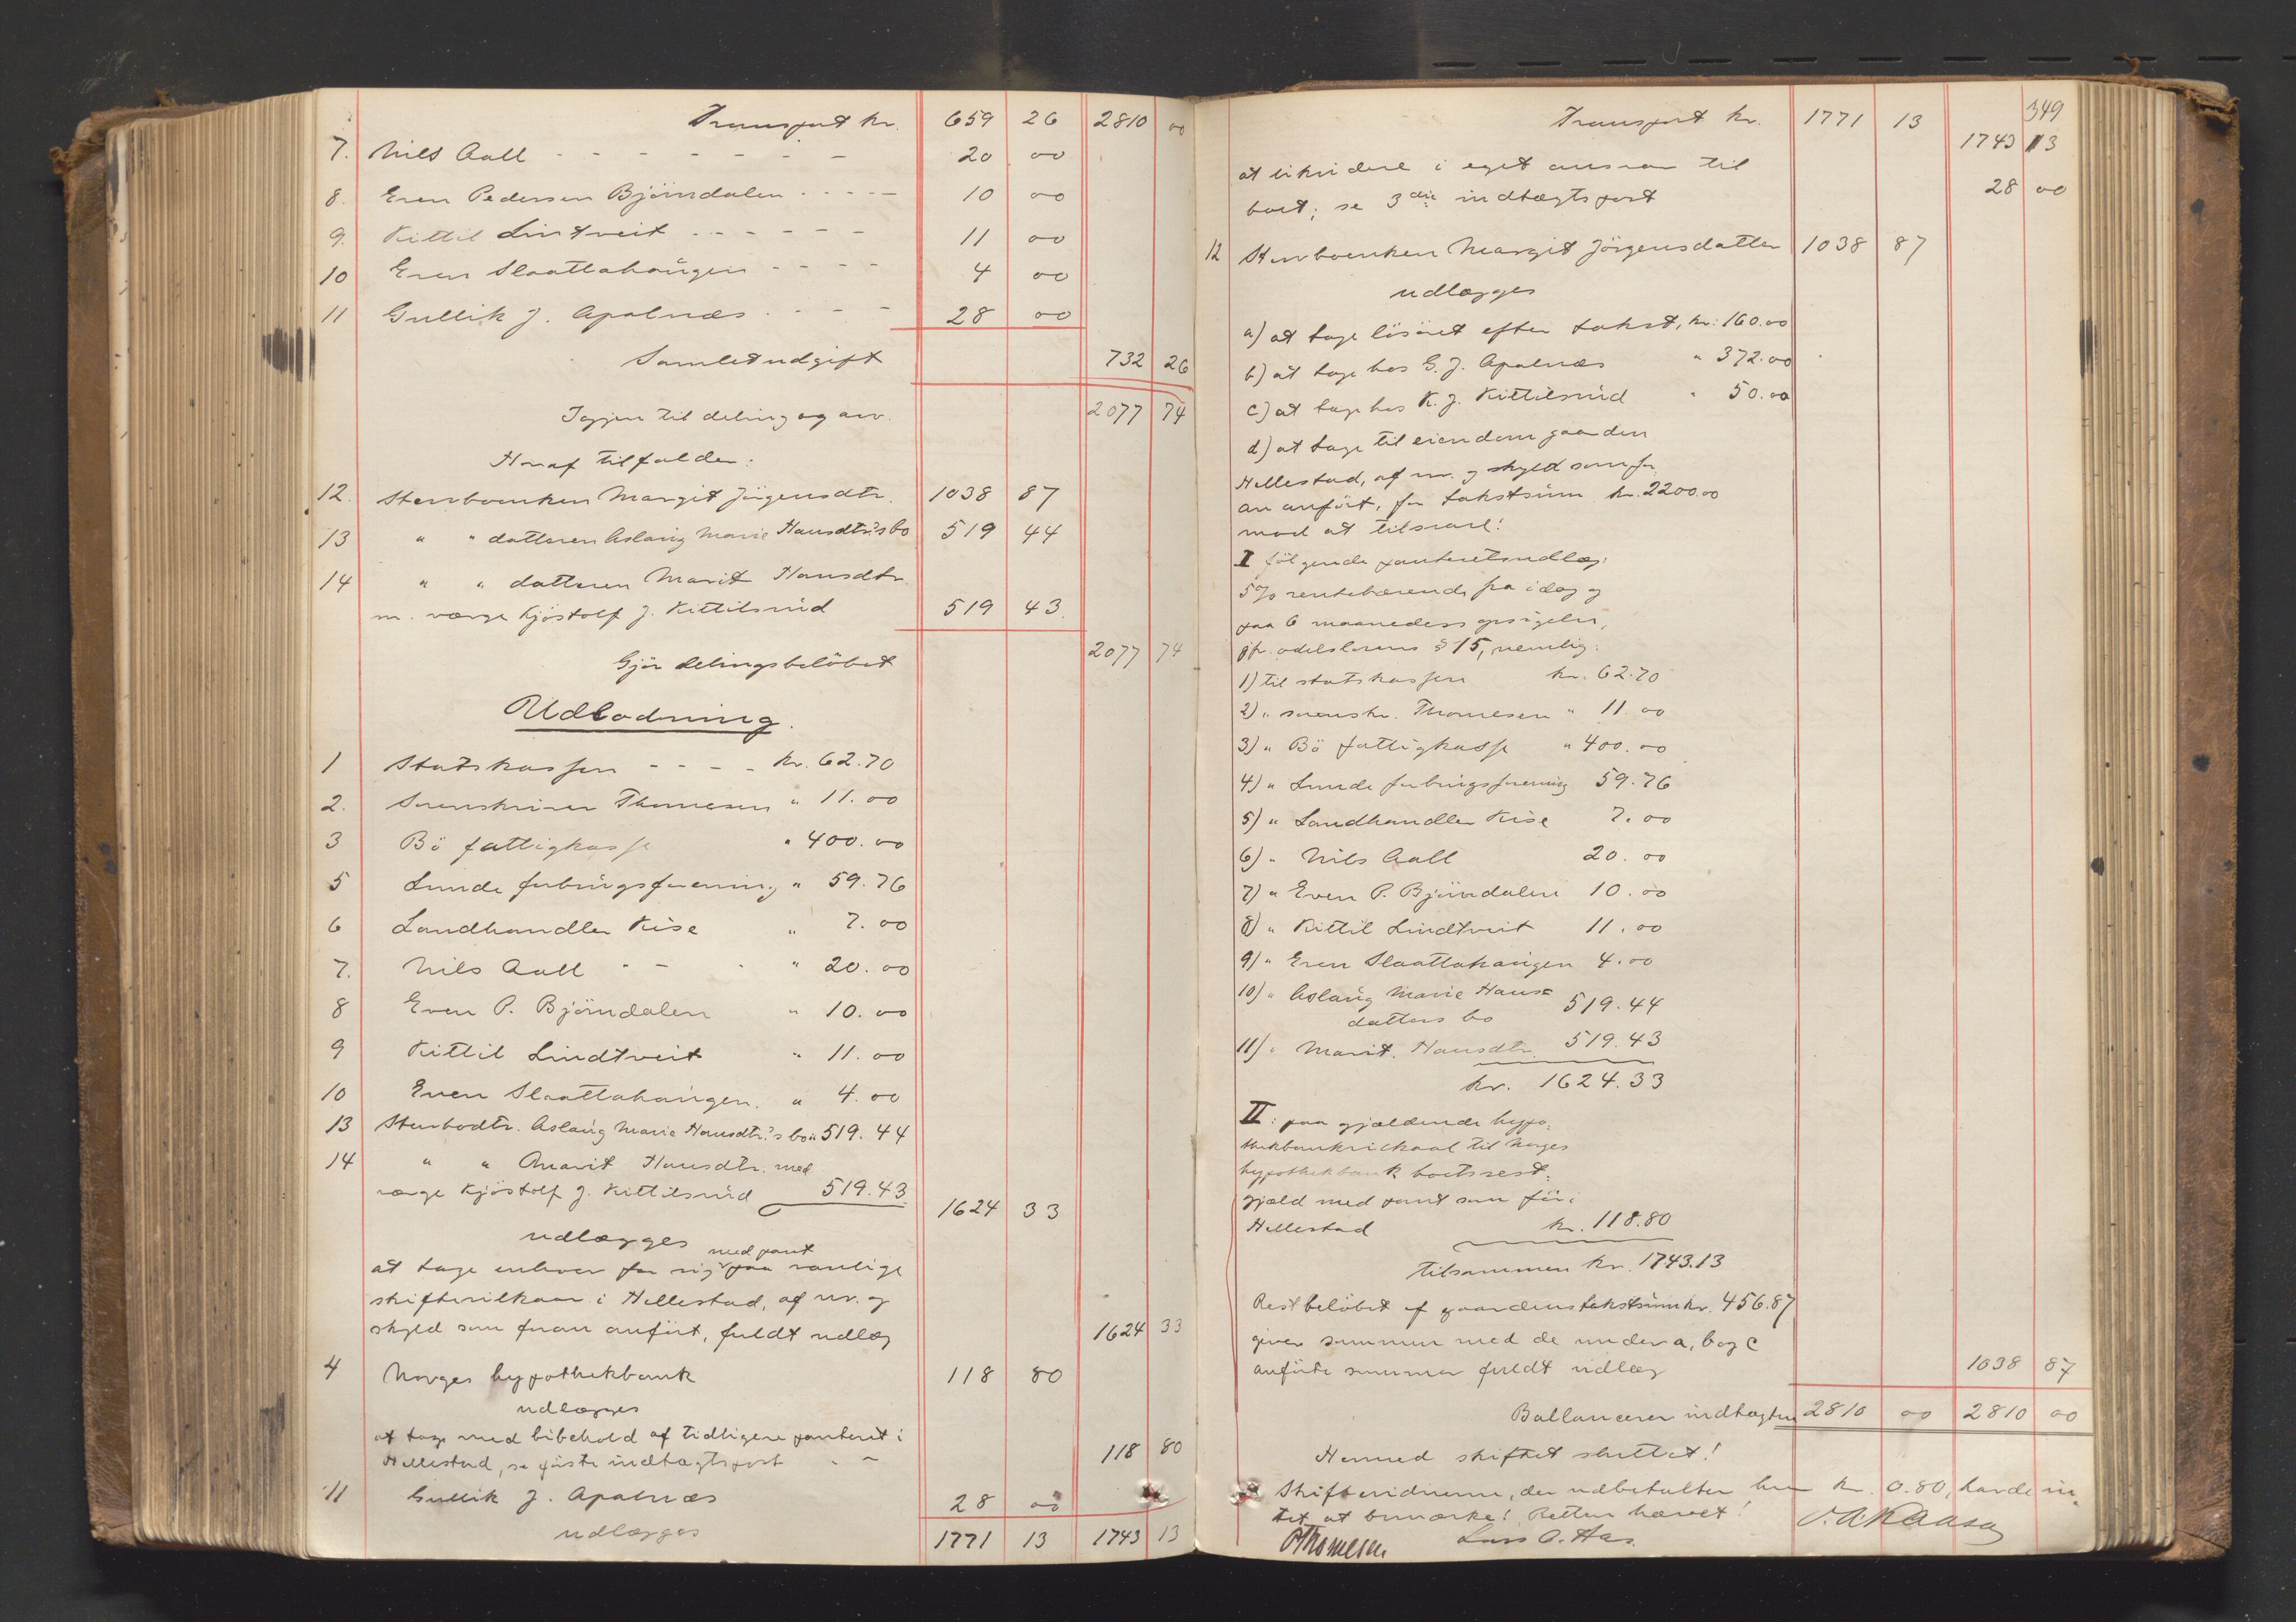 Transport kr. 659 26 2810 00
7. Nils Aall - - - - - - - 20 00
8. Even Pedersen Bjørndalen - - - - - 10 00
9. Kittil Lindtveit - - - - - - 11 00
10 Even Slaattahaugen - - - - 4 00
11 Gullik J. Apalnæs - - - - 28 00
Samlet udgift 732 26
Igjen til deling og arv. 2077 74
Heraf tilfalder:
12. Stervboenken Margit Jörgensdtr. 1038 87
13 " " datteren Aslaug Marie Hansdtr.'s bo 519 44
14 " " datteren Marit Hansdtr.
m. værge Kjöstolf J. Kittilsrud 519 43
Gjör delingsbelöbet 2077 74
Udlodning.
1 Statskassen - - - - kr. 62.70
2. Sorenskriver Thomesen " 11.00
3 Bö fattigkasse " 400.00
5 Lunde forbrugsforening " 59.76
6 Landhandler Kise " 7.00
7. Nils Aall - - - " 20.00
8 Even P. Bjørndalen " 10.00
9 Kittil Lindtveit " 11.00
10 Even Slaattahaugen. " 4.00
13 Stervbodtr. Aslaug Marie Hansdtr.'s bo " 519.44
14 " " Marit Hansdtr. med
værge Kjöstolf J. Kittilsrud 519.43 1624 33
udlægges
at tage enhver for sig med pant paa vanlige
skiftevilkaar i Hellestad, af nr. og
skyld som foran anfört, fuldt udlæg 1624 33
4 Norges hypothekbank 118 80
udlægges
at tage med bibehold af tidligere panteret i
Hellestad, se förste indtægtspost - - 118 80
11 Gullik J. Apalnæs 28 00
udlægges 1771 13 1743 13
349
Transport kr. 1771 13 1743 13
at likvidere i eget ansvar til
boet; se 3die indtægtspost 28 00
12 Stervboenken Margit Jörgensdatter 1038 87
udlægges
a) at tage lösöret efter takst, kr. 160.00
b) at tage hos G. J. Apalnæs " 372.00
c) at tage hos K. J. Kittilsrud " 50.00
d) at tage til eiendom gaarden
Hellestad, af nr. og skyld som for
an anfört, for takstsum kr. 2200.00
mod at tilsvare:
I følgende panteretsudlæg,
5% rentebærende fra idag og
paa 6 maaneders opsigelse,
jfr. odelslovens § 15, nemlig:
1) til statskassen kr. 62.70
2) " sorenskr. Thomesen " 11.00
3) " Bö fattigkasse " 400.00
4) " Lunde forbrugsforening 59.76
5) " Landhandler Kise 7.00
6) " Nils Aall 20.00
7) " Even P. Bjørndalen 10.00
8) " Kittil Lindtveit 11.00
9) " Even Slaattahaugen 4.00
10) " Aslaug Marie Hans=
datters bo 519.44
11) " Marit Hansdtr. 519.43
kr. 1624.33
II: paa gjældende hypo=
thekbankvilkaal til Norges
hypothekbank boets rest=
gjæld med pant som för i
Hellestad kr. 118.80
tilsammen kr. 1743.13
Restbelöbet af gaardens takstsum kr. 456.87
giver sammen med de under a, b og c
anförte summer fuldt udlæg 1038 87
Ballancerer indtægten 2810 00 2810 00
Hermed skiftet sluttet!
Skiftevidnerne, der udbetaltes hver kr. 0.80, havde in=
tet at bemærke! Retten hævet!
Thomesen Lars O. Has.